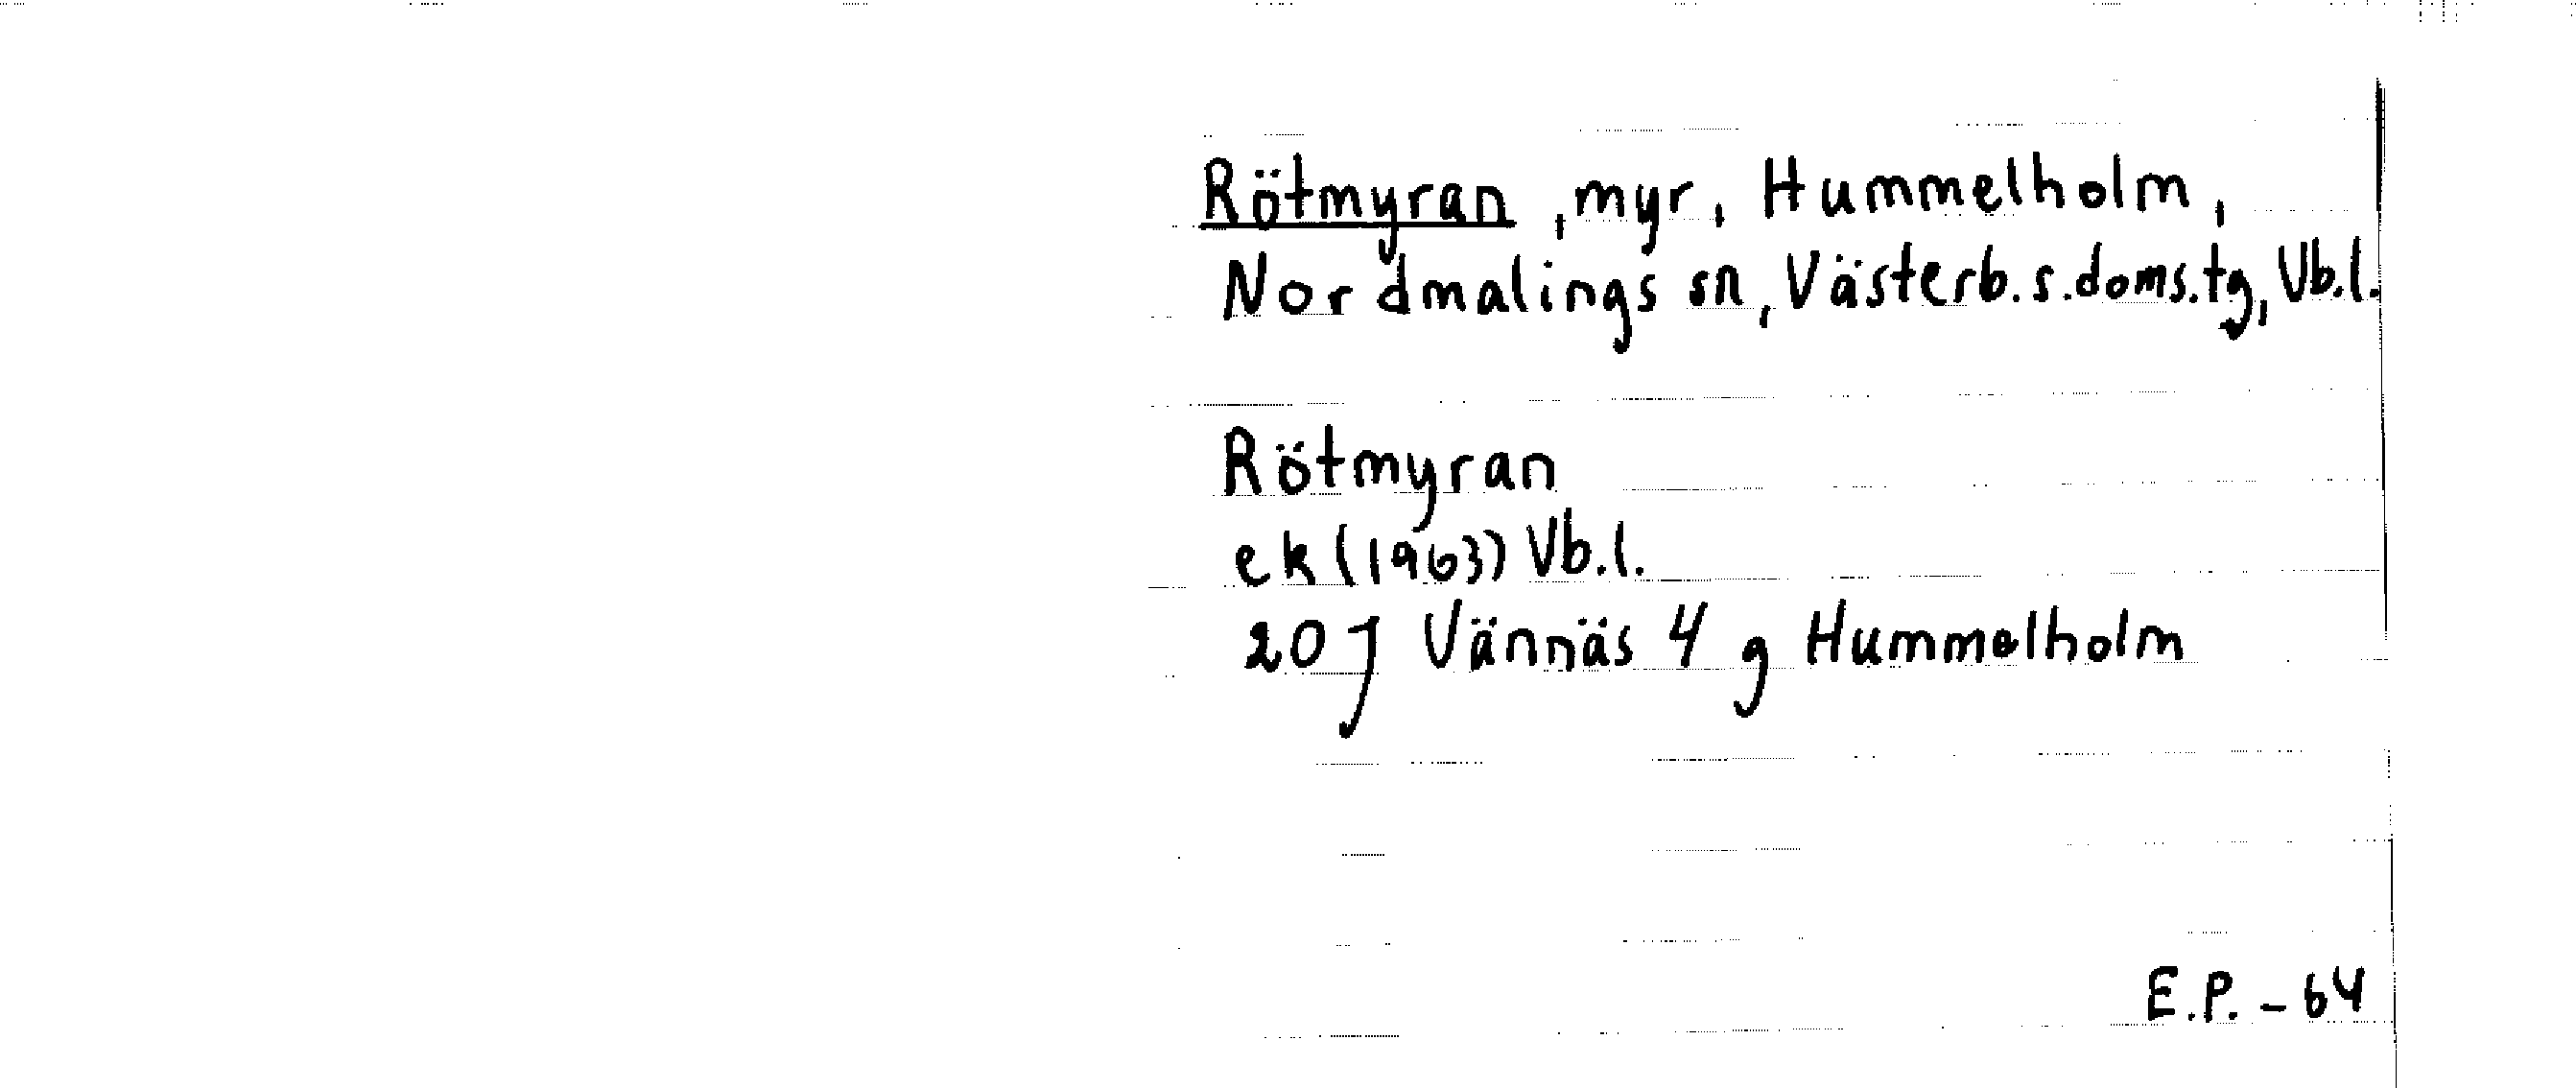 Rötmyran, myr, Hummelholm,
Nordmalings sn, Västerb.s.doms.tg, Vb.l.
Rötmyran
ek (1963) Vb.l.
20 J Vännäs 4 g Hummelholm
E.P. - 64